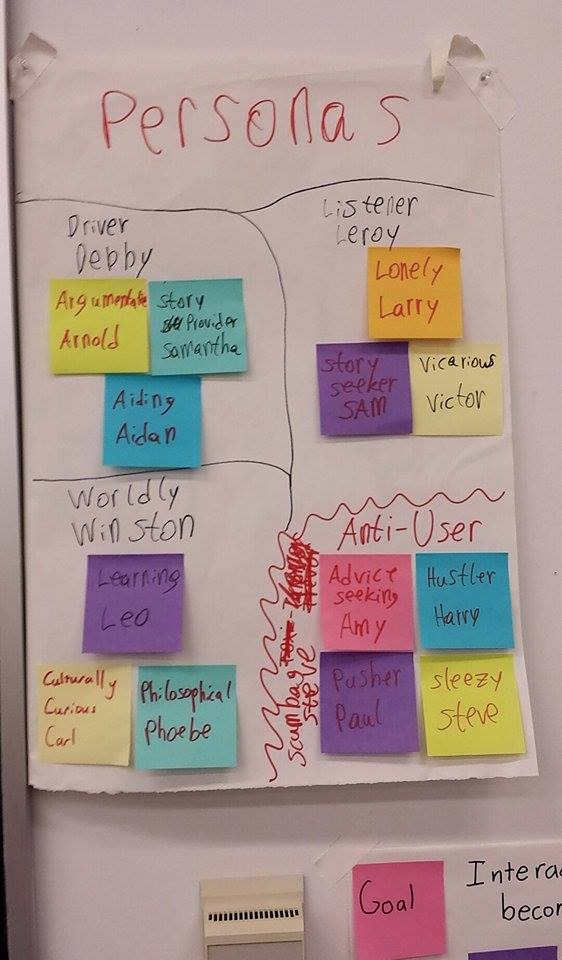 Personas
Driver
Debby
Argumentate
Arnold
story
Provider
Samantha
Aiding
Aidan
Listener
Leroy
Lonely
Larry
story
seeker
SAM
Vicarious
Victor
Worldly
Winston
Learning
Leo
Culturally
Curious
Carl
Philosophical
Phoebe
Anti-User
scumbag
steve
Advice
seeking
Amy
Hustler
Harry
Pusher
Paul
sleezy
steve
Goal
Interac
becor